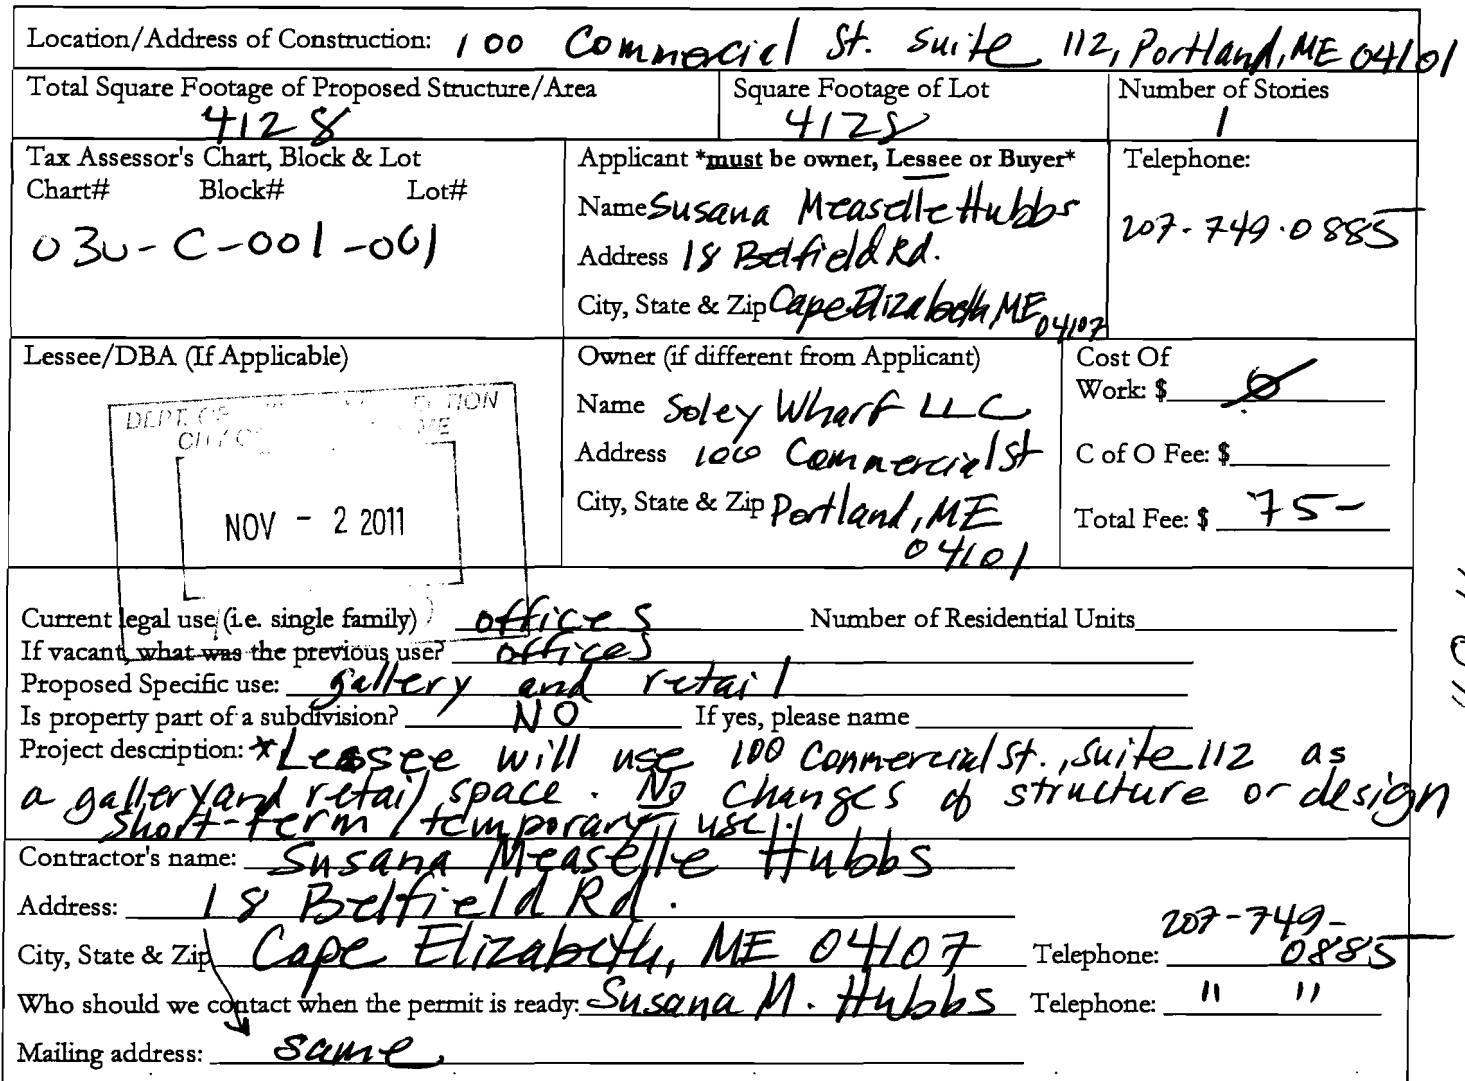 Location/Address of Construction: 100 Commercial St. Suite 112, Portland, ME 04101
Total Square Footage of Proposed Structure/Area
4128
Square Footage of Lot
4128
Number of Stories
1
Tax Assessor's Chart, Block & Lot
Chart# Block# Lot#
030-C-001-001
Applicant *must be owner, Lessee or Buyer*
Name Susana Measelle Hubbs
Address 18 Belfield Rd.
City, State & Zip Cape Elizabeth ME 04107
Telephone:
207-749-0885
Lessee/DBA (If Applicable)
DEPT. OF
CITY OF
NOV - 2 2011
Owner (if different from Applicant)
Name Soley Wharf LLC
Address 100 Commercial St
City, State & Zip Portland, ME
04101
Cost Of
Work: $ 0
C of O Fee: $
Total Fee: $ 75-
Current legal use (i.e. single family) offices Number of Residential Units
If vacant, what was the previous use? offices
Proposed Specific use: gallery and retail
Is property part of a subdivision? NO If yes, please name
Project description: *Lessee will use 100 Commercial St., Suite 112 as
a gallery and retail space. No changes of structure or design
short-term/temporary use.
Contractor's name: Susana Measelle Hubbs
Address: 18 Belfield Rd.
City, State & Zip Cape Elizabeth, ME 04107 Telephone: 207-749-0885
Who should we contact when the permit is ready: Susana M. Hubbs Telephone: " "
Mailing address: same